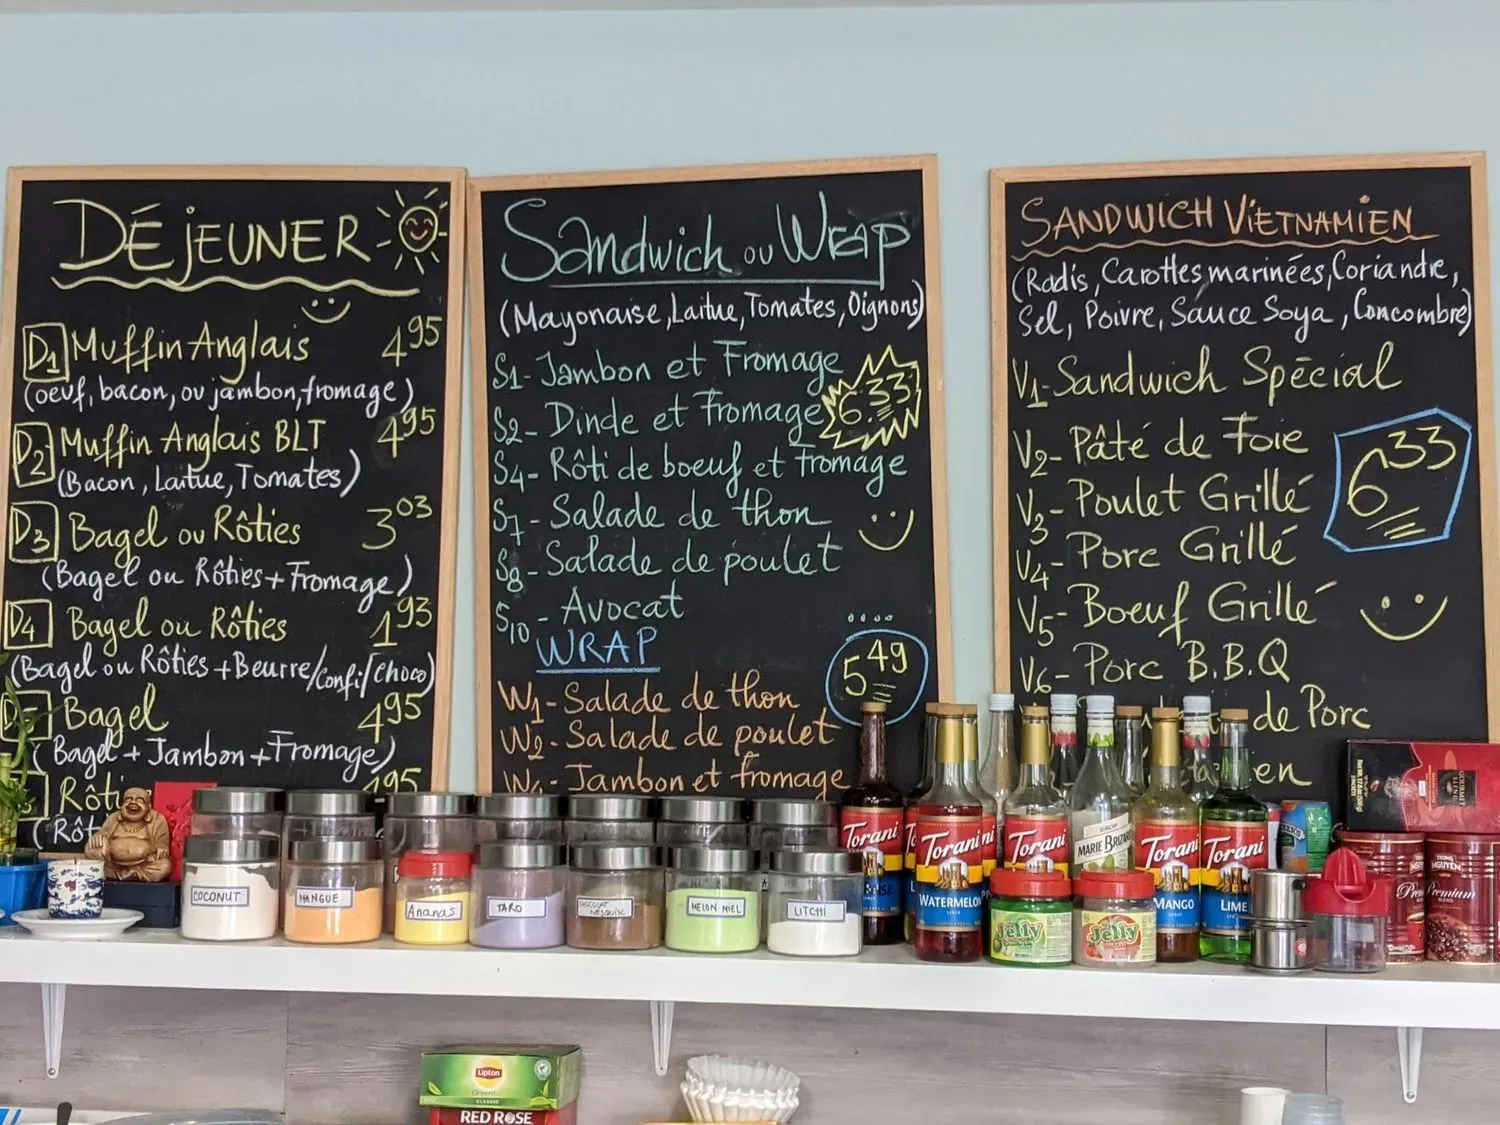 DÉjEUNER
D1 Muffin Anglais 4.95
(oeuf, bacon, ou jambon, fromage)
D2 Muffin Anglais BLT 4.95
(Bacon, Laitue, Tomates)
D3 Bagel ou Rôties 3.03
(Bagel ou Rôties + Fromage)
D4 Bagel ou Rôties 1.93
(Bagel ou Rôties + Beurre/Confi/choco)
Bagel 4.95
(Bagel + Jambon + Fromage)
Rôti
(Rôt
Sandwich ou Wrap
(Mayonaise, Laitue, Tomates, Oignons)
S1- Jambon et Fromage
6.33
S2- Dinde et fromage
S4- Rôti de boeuf et fromage
S7- Salade de thon
S8- Salade de poulet
S10- Avocat
WRAP
5.49
W1- Salade de thon
W2- Salade de poulet
Jambon et fromage
SANDWICH ViETNAMiEN
(Radis, Carottes marinées, Coriandre,
Sel, Poivre, Sauce Soya, Concombre)
V1- Sandwich Spécial
V2- Pâté de Foie
6.33
V3- Poulet Grillé
V4- Porc Grillé
V5- Boeuf Grillé
V6- Porc B.B.Q
de Porc
en
COCONUT
MANGUE
Ananas
TARO
CHOCOLAT
NESQUIK
MELON MIEL
LITCHI
Torani
Torani
WATERMELON
Torani
MARIE BRIZARD
Torani
MANGO
Torani
LIME
Jelly
Jelly
Premium
Premium
Lipton
Green
CLASSIC
RED ROSE